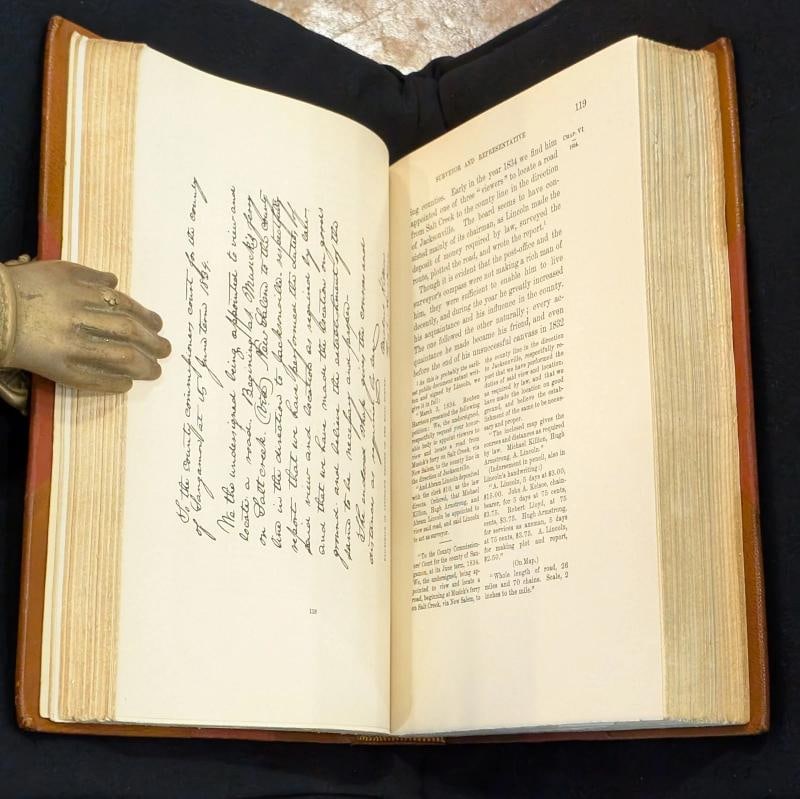 To the county commissioners court for the county
of Sangamon at its June term 1834.
We the undersigned being appointed to view and
locate a road. Begining at Musick's ferry
on Salt creek Via New Salem to the county
line in the direction to Jacksonville respectfully
report that we have performed the duties of
said view and location as required by law
and that we have made the location on good
ground and believe the establishment of the
same to be necessary and proper
The inclosed map gives the courses and
distances as required by law
118
119
SURVEYOR AND REPRESENTATIVE
CHAP. VI.
1834.
ing counties. Early in the year 1834 we find him
appointed one of three "viewers" to locate a road
from Salt Creek to the county line in the direction
of Jacksonville. The board seems to have con-
sisted mainly of its chairman, as Lincoln made the
deposit of money required by law, surveyed the
route, plotted the road, and wrote the report.¹
Though it is evident that the post-office and the
surveyor's compass were not making a rich man of
him, they were sufficient to enable him to live
decently, and during the year he greatly increased
his acquaintance and his influence in the county.
The one followed the other naturally; every ac-
quaintance he made became his friend, and even
before the end of his unsuccessful canvass in 1832
¹ As this is probably the earli-
est public document extant writ-
ten and signed by Lincoln, we
give it in full:
"March 3, 1834. Reuben
Harrison presented the following
petition: We, the undersigned,
respectfully request your honor-
able body to appoint viewers to
view and locate a road from
Musick's ferry on Salt Creek, via
New Salem, to the county line in
the direction of Jacksonville.
"And Abram Lincoln deposited
with the clerk $10, as the law
directs. Ordered, that Michael
Killion, Hugh Armstrong, and
Abram Lincoln be appointed to
view said road, and said Lincoln
to act as surveyor.
"To the County Commission-
ers' Court for the county of San-
gamon, at its June term, 1834.
We, the undersigned, being ap-
pointed to view and locate a
road, beginning at Musick's ferry
on Salt Creek, via New Salem, to
the county line in the direction
to Jacksonville, respectfully re-
port that we have performed the
duties of said view and location,
as required by law, and that we
have made the location on good
ground, and believe the estab-
lishment of the same to be neces-
sary and proper.
"The inclosed map gives the
courses and distances as required
by law. Michael Killion, Hugh
Armstrong, A. Lincoln."
(Indorsement in pencil, also in
Lincoln's handwriting:)
"A. Lincoln, 5 days at $3.00,
$15.00. John A. Kelsoe, chain-
bearer, for 5 days at 75 cents,
$3.75. Robert Lloyd, at 75
cents, $3.75. Hugh Armstrong,
for services as axeman, 5 days
at 75 cents, $3.75. A. Lincoln,
for making plot and report,
$2.50."
(On Map.)
"Whole length of road, 26
miles and 70 chains. Scale, 2
inches to the mile."